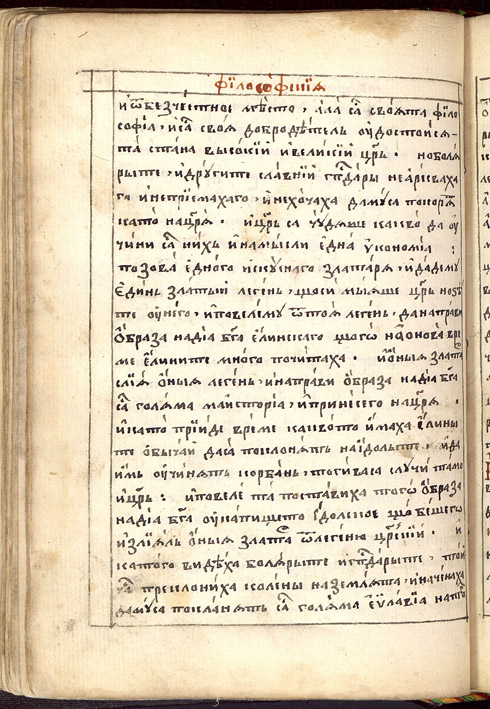 фїлософскїѧ
и ѿ безчестное мѣсто, ала са своѧта філо
софїа, и са своѧ добродѣтель оудостоисѧ
та стана высокїй и великїй цр҃ь . но болѧ
рыте, и другите славнїй гпⷭ҇дары не аресваха
го и не прїемахаго, и не хочаха да му са покорѧтъ
като на цр҃ѧ . и цр҃ь са чꙋдѧше какво да оу
чини са нихъ и намысли една ꙋкономїа :
позова едного искуснаго златарѧ, и дадему
единъ златый легенъ, щоси мыѧше цр҃ь нозѣ
те оу него, и повелему ѿ тоѧ легенъ, да направи
ѡбраза на дїа бг҃а елинскаго щого на ѡнова вре
ме елините много почитаха . и ѡныѧ злата
рїѧ ѡныѧ легенъ, и направи ѡбраза на дїа бг҃а
са голѧма маисторїа, и принесего на цр҃ѧ .
и като прїиде време каквото имаха елины
те обычаи да са поклонѧтъ на їдолыте . и да
имъ оучинѧтъ корбанъ, погиваса случи тамо
и цр҃ь : и повеле та поставиха тогѡ ѡбраза
на дїа бг҃а оу капищото їдолское що бешего
излїѧлъ ѡныѧ златаръ ѿ легенѧ цр҃скїй . и
катого видѣха болѧрыте и гпⷭ҇дарыте, тои
са преклониха колены на землѧта, и начеваха
да му са покланѧтъ са голѧма еѵлавїа като